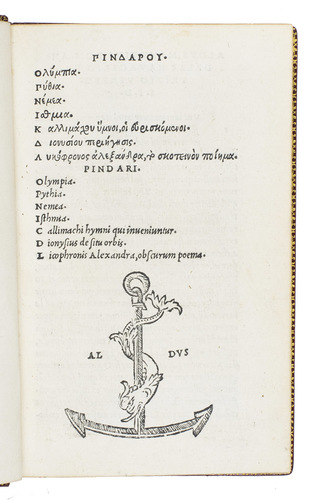 ΠΙΝΔΑΡΟΥ.
Ολύμπια.
Πύθια.
Νέμεα.
Ισθμια.
Καλλιμάχου ὕμνοι, οἱ εὑρισκόμενοι.
Διονυσίου περιήγησις.
Λυκόφρονος ἀλεξάνδρα, τὸ σκοτεινὸν ποίημα.
PINDARI.
Olympia.
Pythia.
Nemea.
Isthmia.
Callimachi hymni qui inveniuntur.
Dionysius de situ orbis.
Licophronis Alexandra, obscurum poema.
AL DVS